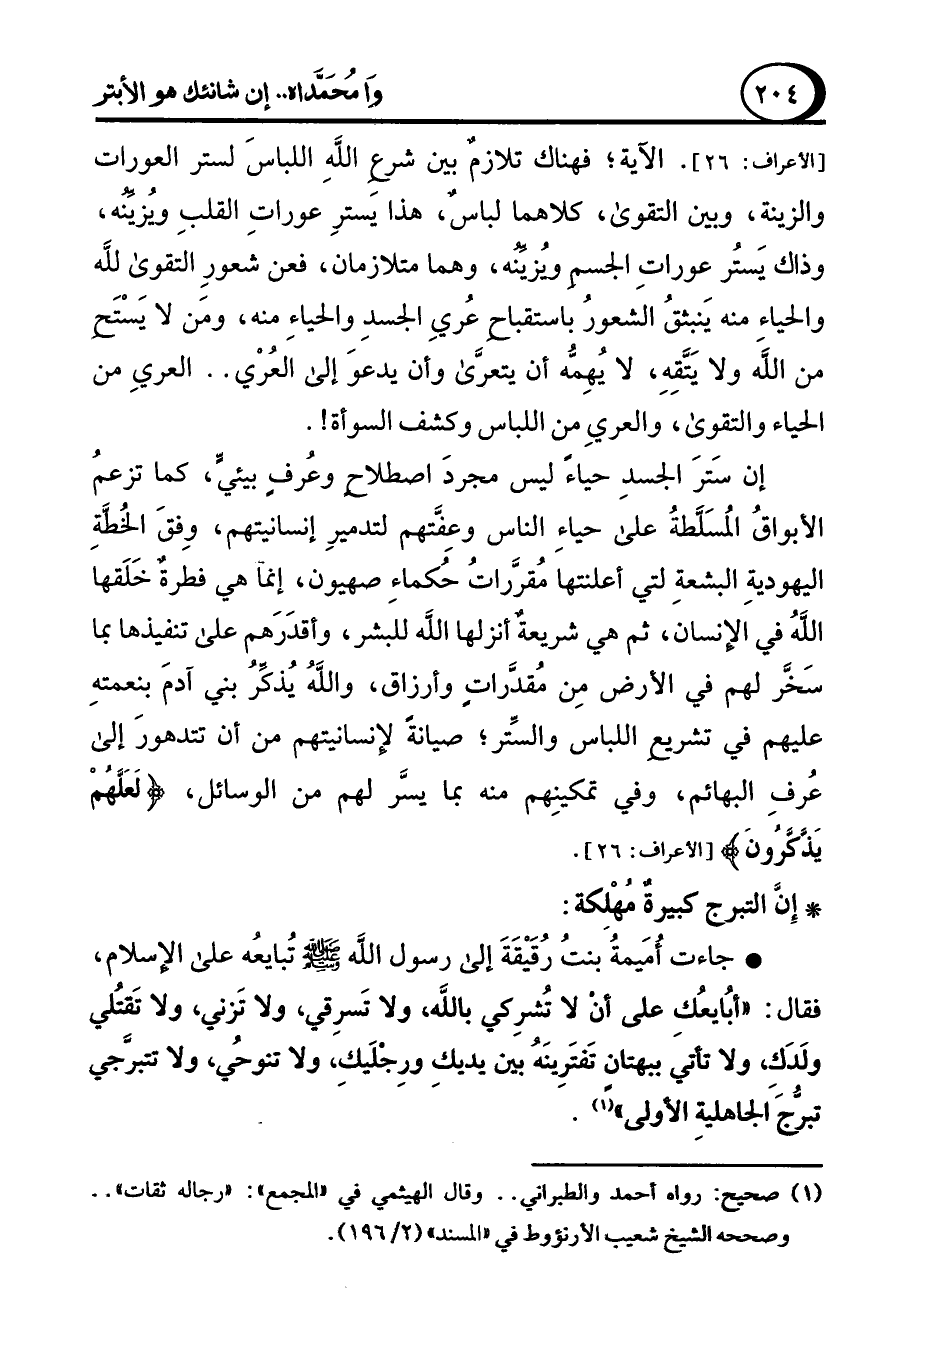 ٢٠٤
وَا مُحَمَّدَاه.. إن شانئك هو الأبتر
[الأعراف: ٢٦]. الآية؛ فهناك تلازمٌ بين شرعِ اللَّهِ اللباسَ لستر العورات
والزينة، وبين التقوىٰ، كلاهما لباسٌ، هذا يَسترِ عوراتِ القلبِ ويُزيِّنُه،
وذاك يَستُر عوراتِ الجسمِ ويُزيِّنُه، وهما متلازمان، فعن شعورِ التقوىٰ للَّه
والحياءِ منه يَنبثقُ الشعورُ باستقباحِ عُريِ الجسدِ والحياءِ منه، ومَن لا يَسْتَحِ
من اللَّه ولا يَتَّقِهِ، لا يُهِمُّه أن يتعرَّىٰ وأن يدعوَ إلىٰ العُرْي.. العريِ من
الحياء والتقوىٰ، والعريِ من اللباس وكشف السوأة!.
إن سَتَرَ الجسدِ حياءً ليس مجردَ اصطلاحٍ وعُرفٍ بيئيٍّ، كما تزعمُ
الأبواقُ المُسَلَّطةُ علىٰ حياءِ الناس وعِفَّتهم لتدميرِ إنسانيتهم، وفقَ الخُطَّةِ
اليهوديةِ البشعةِ لتي أعلنتها مُقرَّراتُ حُكماءِ صهيون، إنمآ هي فطرةٌ خَلَقها
اللَّهُ في الإنسان، ثم هي شريعةٌ أنزلها اللَّه للبشر، وأقدَرَهم علىٰ تنفيذها بما
سَخَّر لهم في الأرض مِن مُقدَّراتٍ وأرزاق، واللَّهُ يُذكِّرُ بني آدمَ بنعمتهِ
عليهم في تشريعِ اللباس والسِّتر؛ صيانةً لإنسانيتهم من أن تتدهورَ إلىٰ
عُرفِ البهائم، وفي تمكينِهم منه بما يسَّر لهم من الوسائل، ﴿لَعَلَّهُمْ
يَذَّكَّرُونَ﴾ [الأعراف: ٢٦].
* إنَّ التبرج كبيرةٌ مُهْلِكة:
● جاءت أُمَيمةُ بنتُ رُقَيْقَةَ إلىٰ رسول اللَّه ﷺ تُبايعُه علىٰ الإسلام،
فقال: «أُبايعُكِ على أنْ لا تُشركي باللَّه، ولا تَسرقي، ولا تَزني، ولا تَقتُلي
ولَدَكِ، ولا تأتي ببهتانٍ تَفتَرِينَهُ بين يديكِ ورِجْلَيكِ، ولا تنوحُي، ولا تتبرَّجي
تبرُّجَ الجاهليةِ الأولى»(١).
(١) صحيح: رواه أحمد والطبراني.. وقال الهيثمي في «المجمع»: «رجاله ثقات»..
وصححه الشيخ شعيب الأرنؤوط في «المسند» (١٩٦/٢).